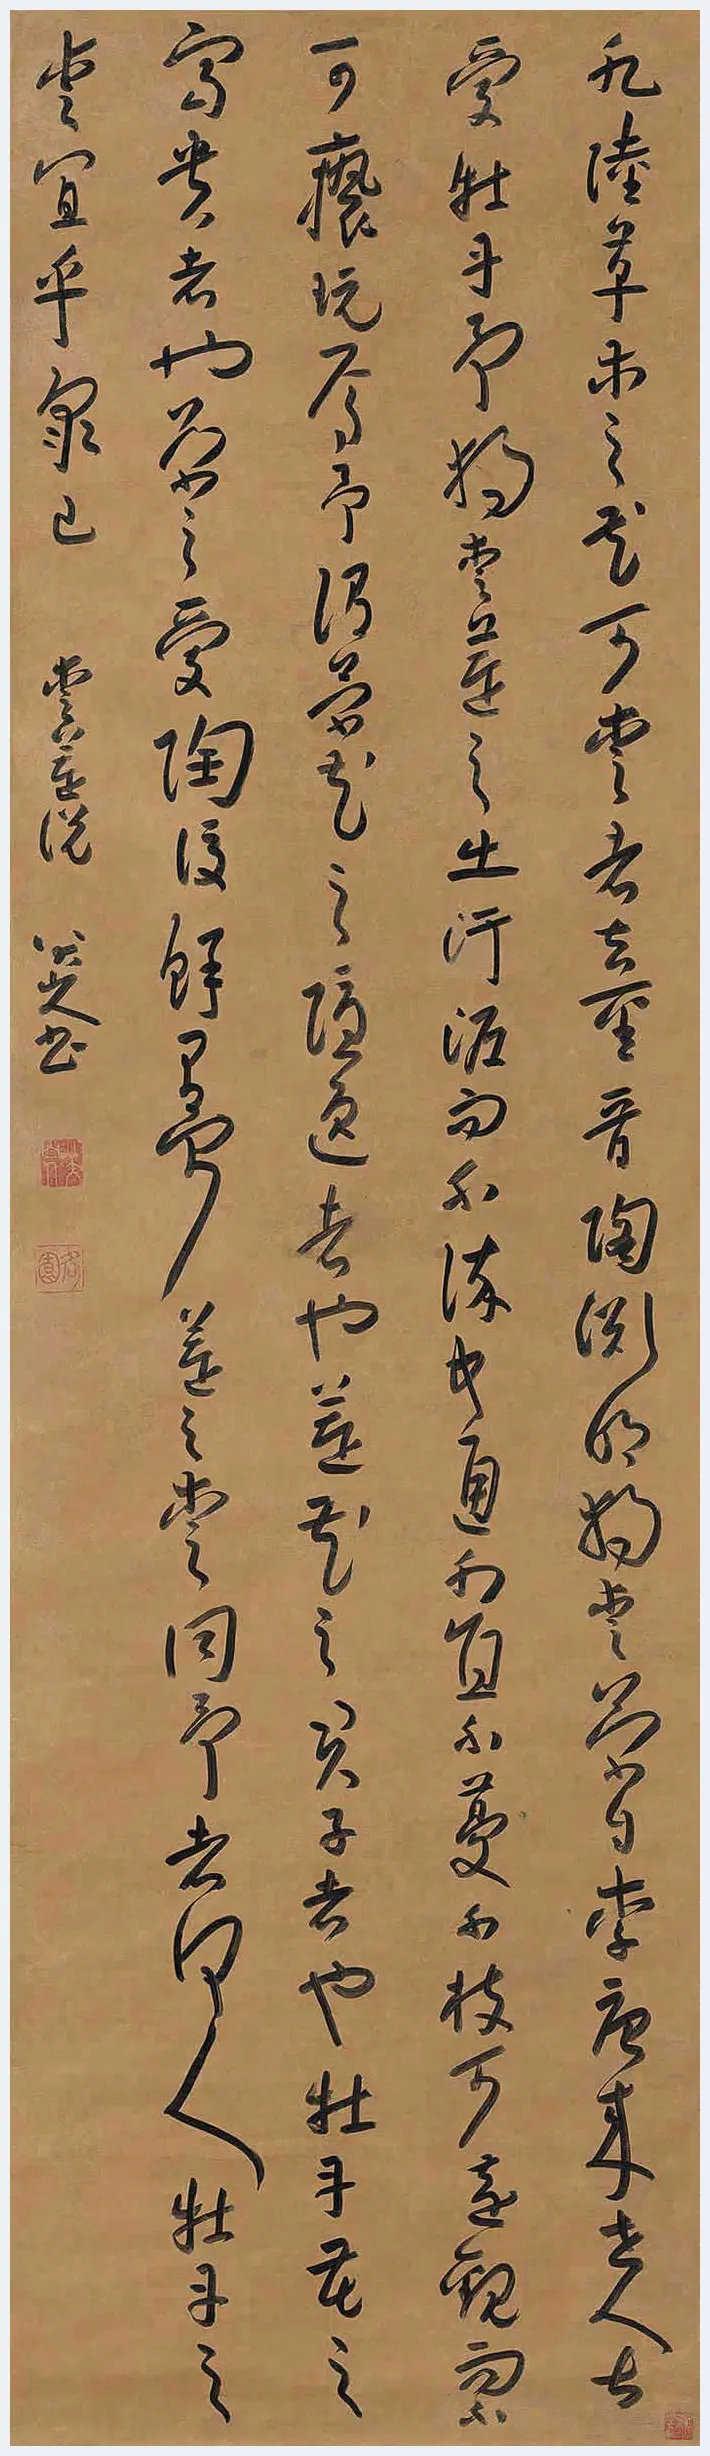 凡陸草木之花可愛者甚晉陶淵明獨愛菊自李唐來世人甚
愛牡丹予獨愛蓮之出淤泥而不染中通外直不蔓不枝可遠觀而不
可褻玩焉予謂菊花之隱逸者也蓮花之君子者也牡丹花之
富貴者也菊之愛陶後鮮有聞蓮之愛同予者何人牡丹之
愛宜乎衆已 愛蓮說 八大山人書